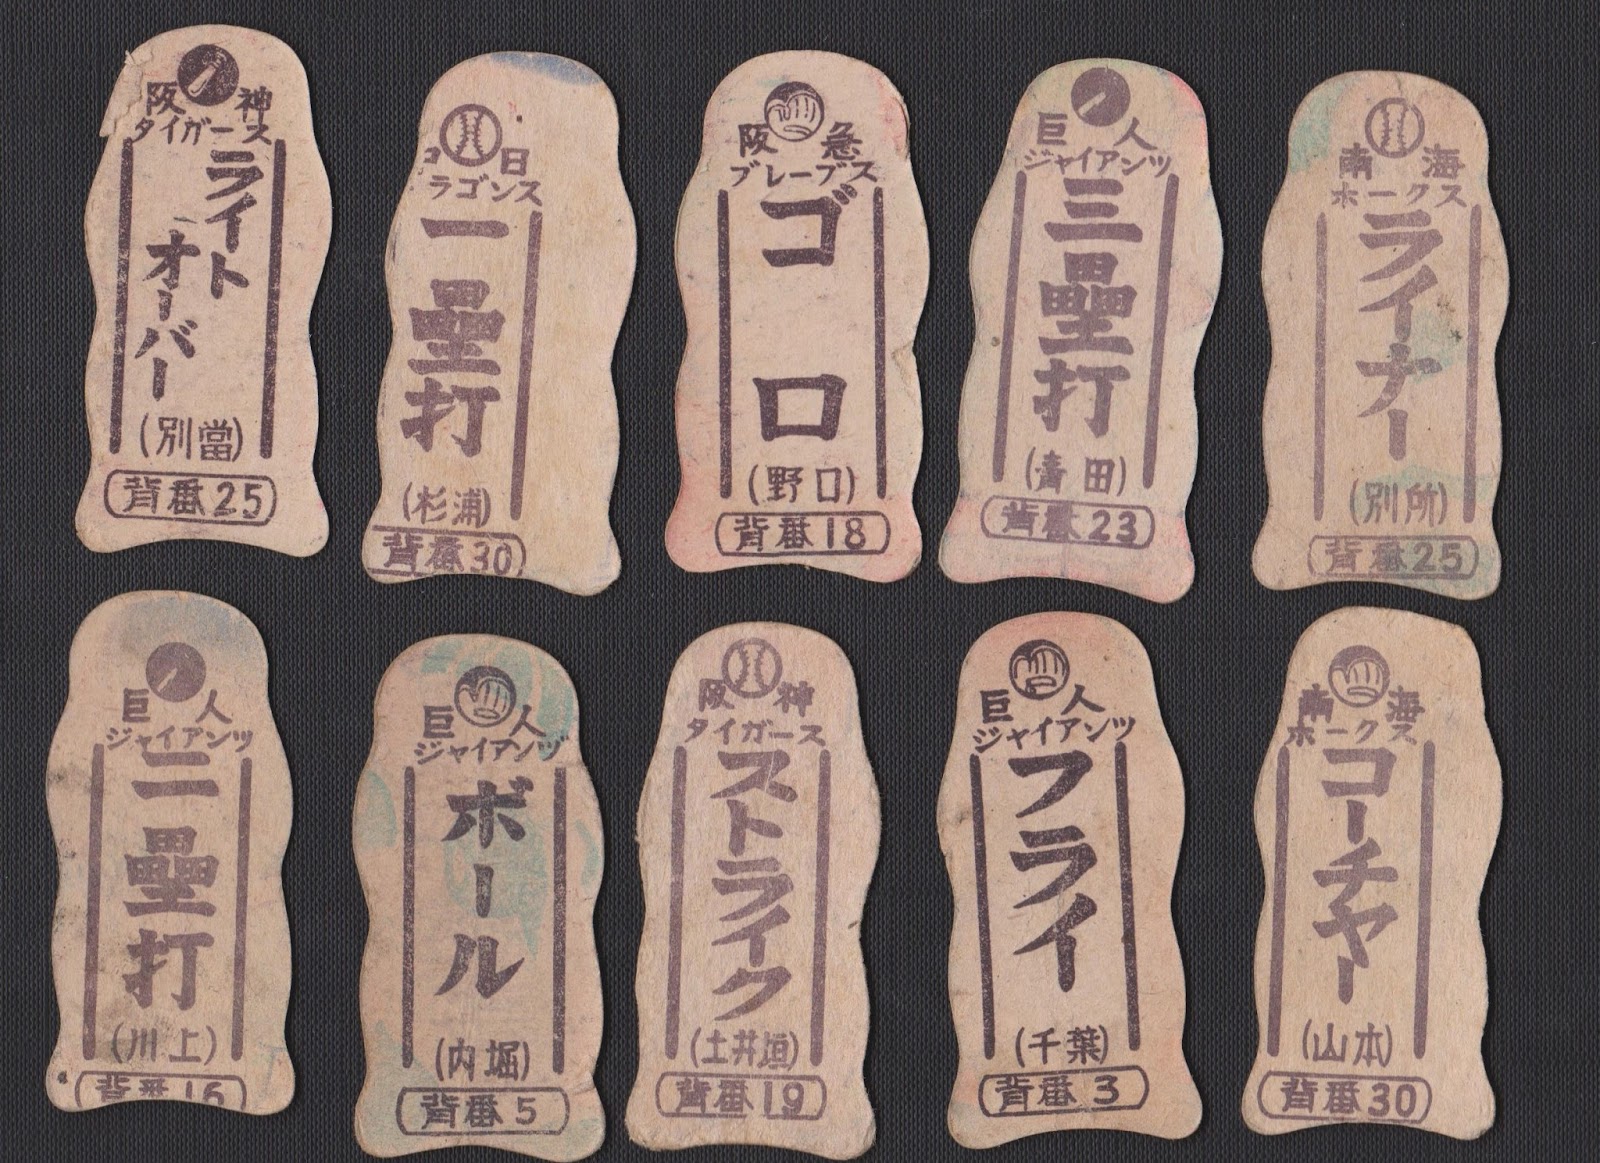 阪神
タイガース
ライト
オーバー
(別當)
背番25
日
ラゴンス
一壘打
(杉浦)
背番30
阪急
ブレーブス
ゴロ
(野口)
背番18
巨人
ジャイアンツ
三壘打
(青田)
背番23
南海
ホークス
ライナー
(別所)
背番25
巨人
ジャイアンツ
二壘打
(川上)
背番16
巨人
ジャイアンツ
ボール
(内堀)
背番5
阪神
タイガース
ストライク
(土井垣)
背番19
巨人
ジャイアンツ
フライ
(千葉)
背番3
南海
ホークス
コーチヤー
(山本)
背番30